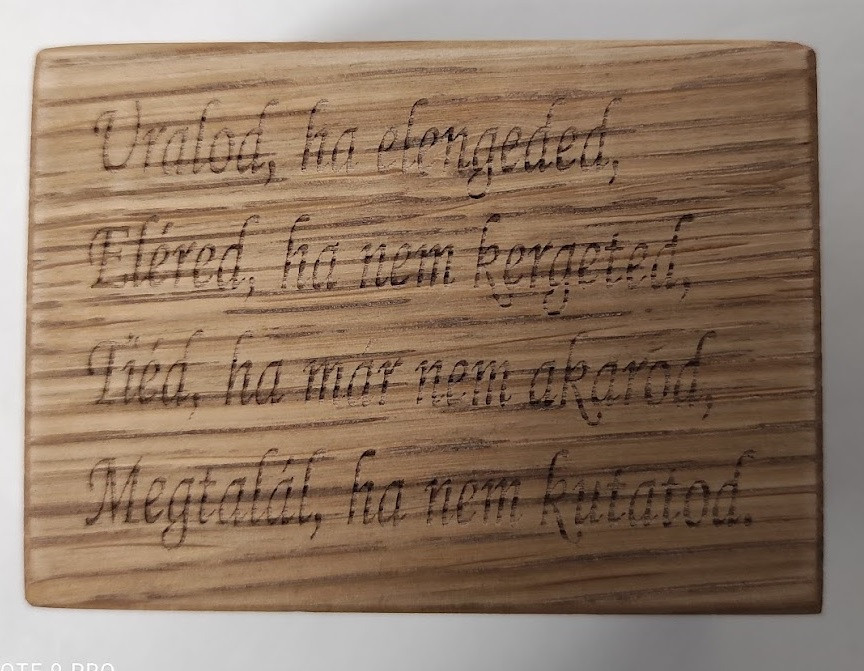 Uralod, ha elengeded,
Eléred, ha nem kergeted,
Tiéd, ha már nem akarod,
Megtalál, ha nem kutatod.